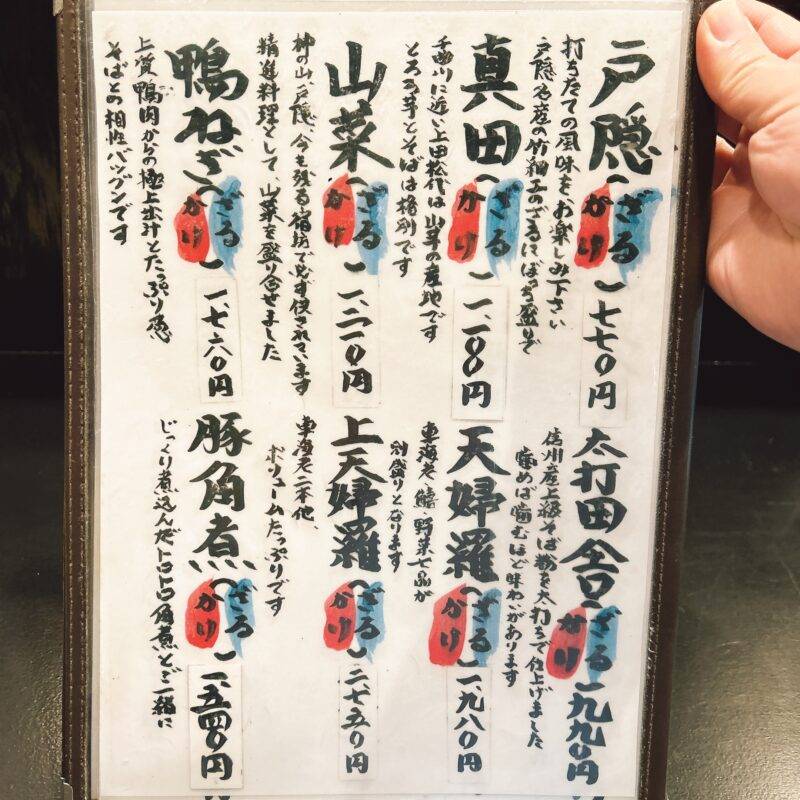 戸隠（ざる
かけ）七七〇円
打ちたての風味をお楽しみ下さい
戸隠名産の竹細工のざるにぼっち盛りで
真田（ざる
かけ）一、一〇〇円
千曲川に近い上田松代は山芋の産地です
とろろ芋とそばは格別です
山菜（ざる
かけ）
神の山、戸隠、今も残る宿坊で必ず供されています
精進料理として山菜を盛り合せました
鴨ねぎ（ざる
かけ）一、七六〇円
上質鴨肉からの極上出汁とたっぷり葱
そばとの相性バツグンです
太打田舎（ざる
かけ）九九〇円
信州産上級そば粉を太打ちで仕上げました
噛めば噛むほど味わいがあります
天婦羅（ざる
かけ）一、九八〇円
車海老 鱚 野菜七品が
別盛りとなります
上天婦羅（ざる
かけ）二、七五〇円
車海老二本他、
ボリュームたっぷりです
豚角煮（ざる
かけ）一、五四〇円
じっくり煮込んだトロトロ角煮とご一緒に